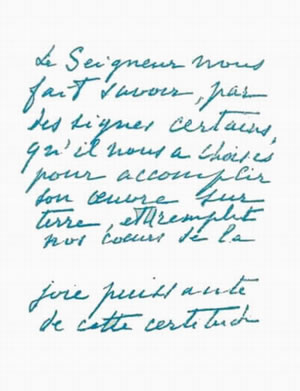 Le Seigneur nous
fait savoir, par
des signes certains,
qu'il nous a choisis
pour accomplir
son œuvre sur
terre, et Il remplit
nos cœurs de la
joie puissante
de cette certitude